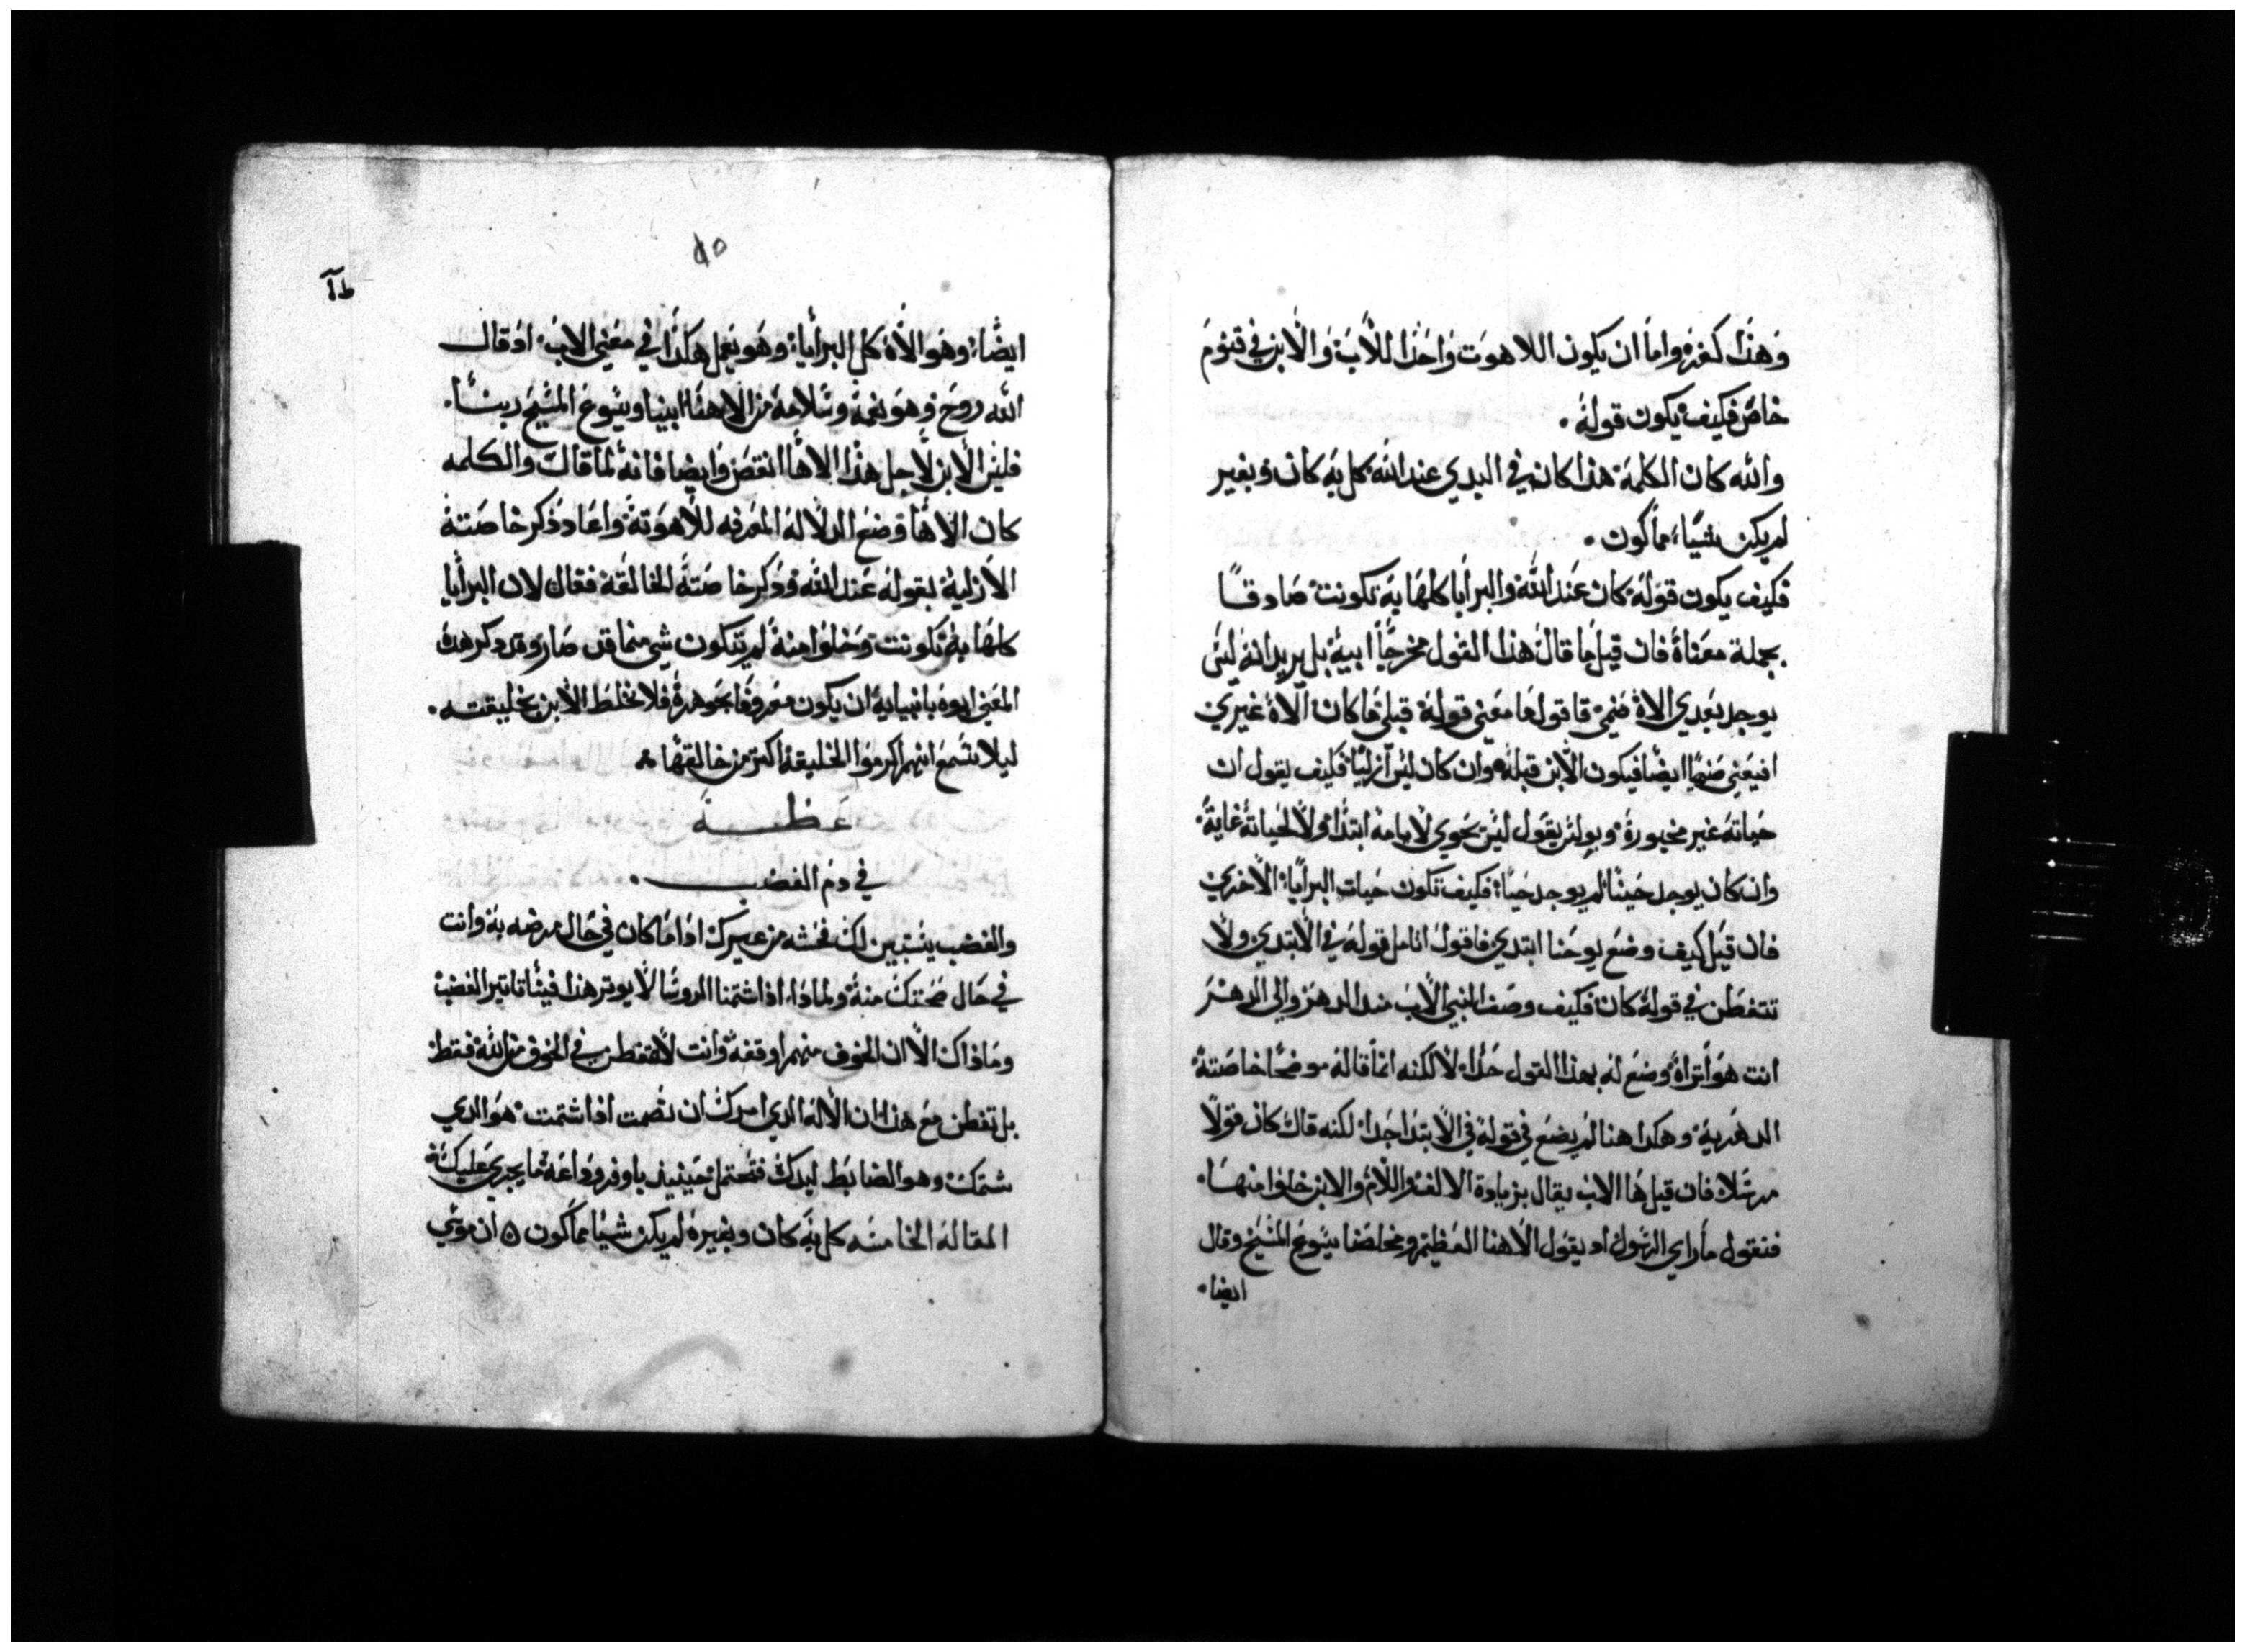 وهذا كفره واما ان يكون اللاهوت واحدا للاب والابن في قنوم
خاص فكيف يكون قوله.
والله كان الكلمة هذا كان في البدي عند الله كل به كان وبغير
لم يكن شيا مما كون.
فكيف يكون قوله كان عند الله والبرايا كلها به تكونت صادقا
بجملة معناه فان قيل ما قال هذا القول مخرجا ابيه بل يريد انه ليس
يوجد بعدي الاه صنمي فاقول ما معني قوله قبلي ما كان الاه غيري
افيعني صنميا ايضا فيكون الابن قبله وان كان ليس ازليا فكيف يقول ان
حياته غير مخبورة وبولس يقول ليس يحوي لايامه ابتدا ولا لحياته غاية
وان كان يوجد حينا لم يوجد حيا فكيف تكون حيات البرايا الاخري
فان قيل كيف وضع يوحنا ابتدي فاقول اتامل قوله في الابتدي ولا
تتفطن في قوله كان فكيف وصف النبي الاب منذ الدهر والي الدهر
انت هو اتراه وضع له بهذا القول حدا لا لكنه انما قاله موضحا خاصته
الدهرية وهكدا هنا لم يضع في قوله في الابتدا حدا لكنه قال كان قولا
مرسلا فان قيل ها الاب يقال بزيادة الالف واللام والابن خلوا منها.
فنقول ما راي الرسول اد يقول الاهنا العظيم ومخلصنا يسوع المسيح وقال
ايضا.
٤٥
طآ
ايضا وهو الاه كل البرايا وهو يعمل هكذا في معني الاب اد قال
الله روح وهو نعمة وسلامة من الاهنا ابينا ويسوع المسيح ربنا.
فليس الابن لاجل هذا الاها انقص وايضا فانه لما قال والكلمه
كان الاها وضع الدلالة المعرفه للاهوته واعاد ذكر خاصته
الازلية بقوله عند الله ودكر خاصته الخالقة فقال لان البرايا
كلها به تكونت وخلوا منه لم يتكون شي مما قد صار وقد دكر هده
المعني ابوه بانبيايه ان يكون معروفا بجوهره فلا نخلط الابن بخليقته.
ليلا نسمع انهم اكرموا الخليقة اكتر من خالقها
عظة
في دم الغضب.
والغضب يستبين لك فحشه من غيرك ادا ما كان في حال مرضه به وانت
في حال صحتك منه ولمادا ادا اشتمنا الروسا لا يوتر هذا فينا تاتير الغضب
وما ذاك الا ان الخوف منهم اوقفه وانت لا تتفطن في الخوف من الله فقط
بل تفطن مع هذا ان الاله الدي امرك ان تصمت ادا اشتمت هو الدي
شتمك وهو الضابط ليدك فتحتمل حينيد باوفر وداعة ما يجري عليك
المقالة الخامسه كل به كان وبغيره لم يكن شيا مما كون ان موسي